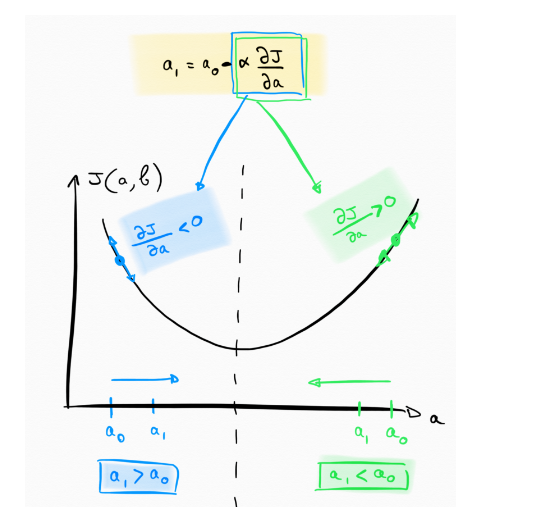 a₁ = a₀ - α ∂J/∂a
J(a,b)
∂J/∂a < 0
∂J/∂a > 0
a₀ a₁ a₁ a₀ a
a₁ > a₀ a₁ < a₀